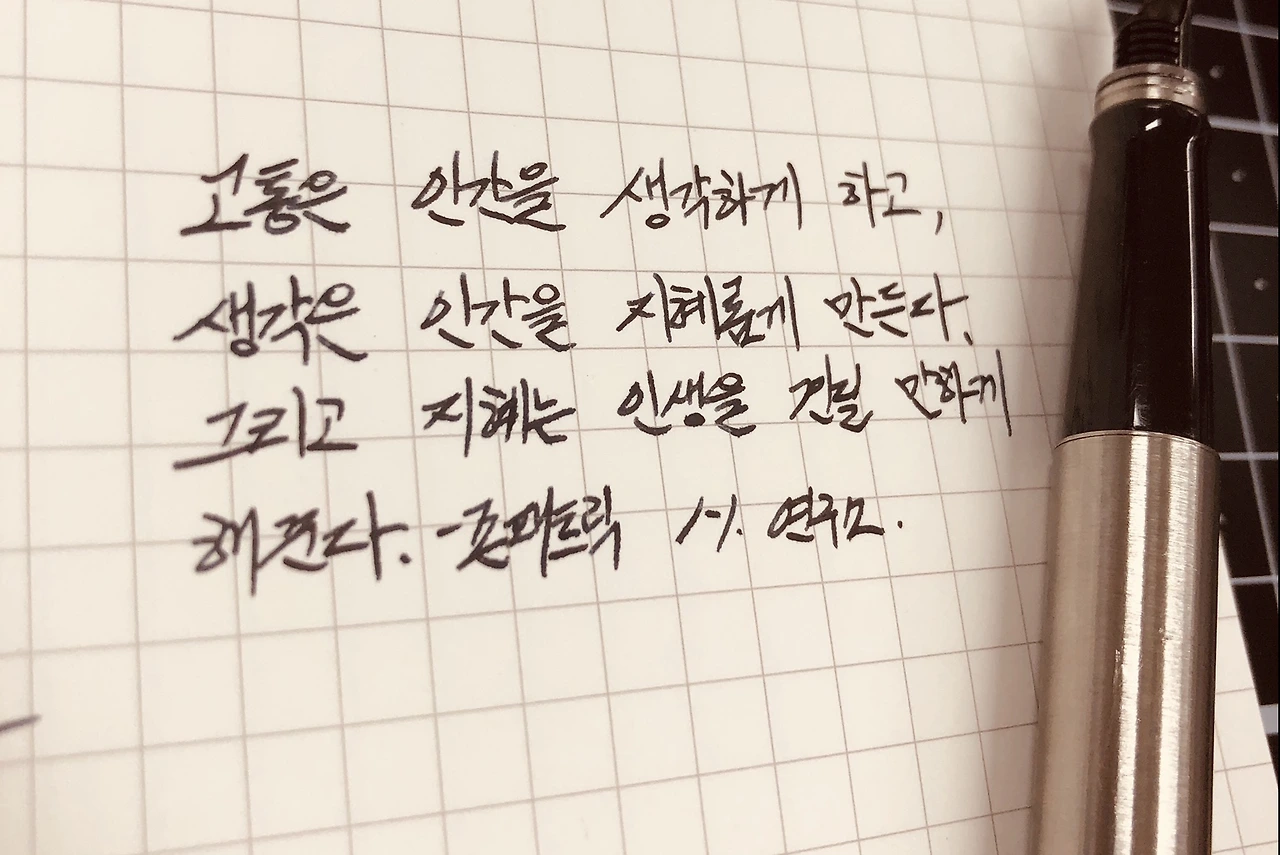 고통은 인간을 생각하게 하고,
생각은 인간을 지혜롭게 만든다.
그리고 지혜는 인생을 견딜 만하게
해준다. -존패트릭 서. 연구모.